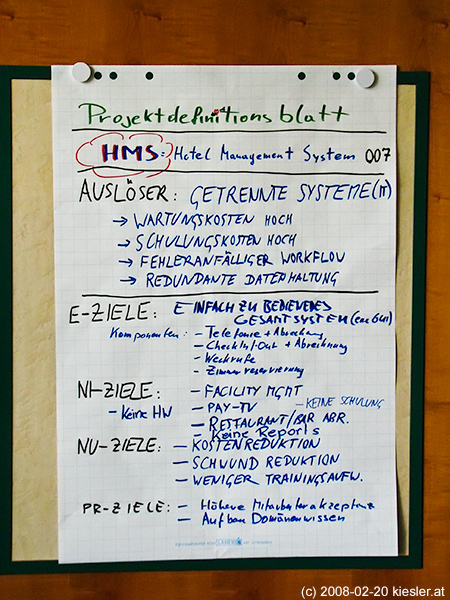 Projektdefinitionsblatt
HMS = Hotel Management System 007
AUSLÖSER: GETRENNTE SYSTEME (IT)
→ WARTUNGSKOSTEN HOCH
→ SCHULUNGSKOSTEN HOCH
→ FEHLERANFÄLLIGER WORKFLOW
→ REDUNDANTE DATENHALTUNG
E-ZIELE: EINFACH ZU BEDIENENDES
GESAMTSYSTEM (eine GUI)
Komponenten: - Telefonie + Abrechnung
- Check In/Out + Abrechnung
- Weckrufe
- Zimmerreservierung
NI-ZIELE: - FACILITY MGMT
- Keine HW - PAY-TV - KEINE SCHULUNG
- RESTAURANT/BAR ABR.
- Keine Reports
NU-ZIELE: - KOSTENREDUKTION
- SCHWUND REDUKTION
- WENIGER TRAININGSAUFW.
PR-ZIELE: - Höhere Mitarbeiterakzeptanz
- Aufbau Domänenwissen
(c) 2008-02-20 kiesler.at